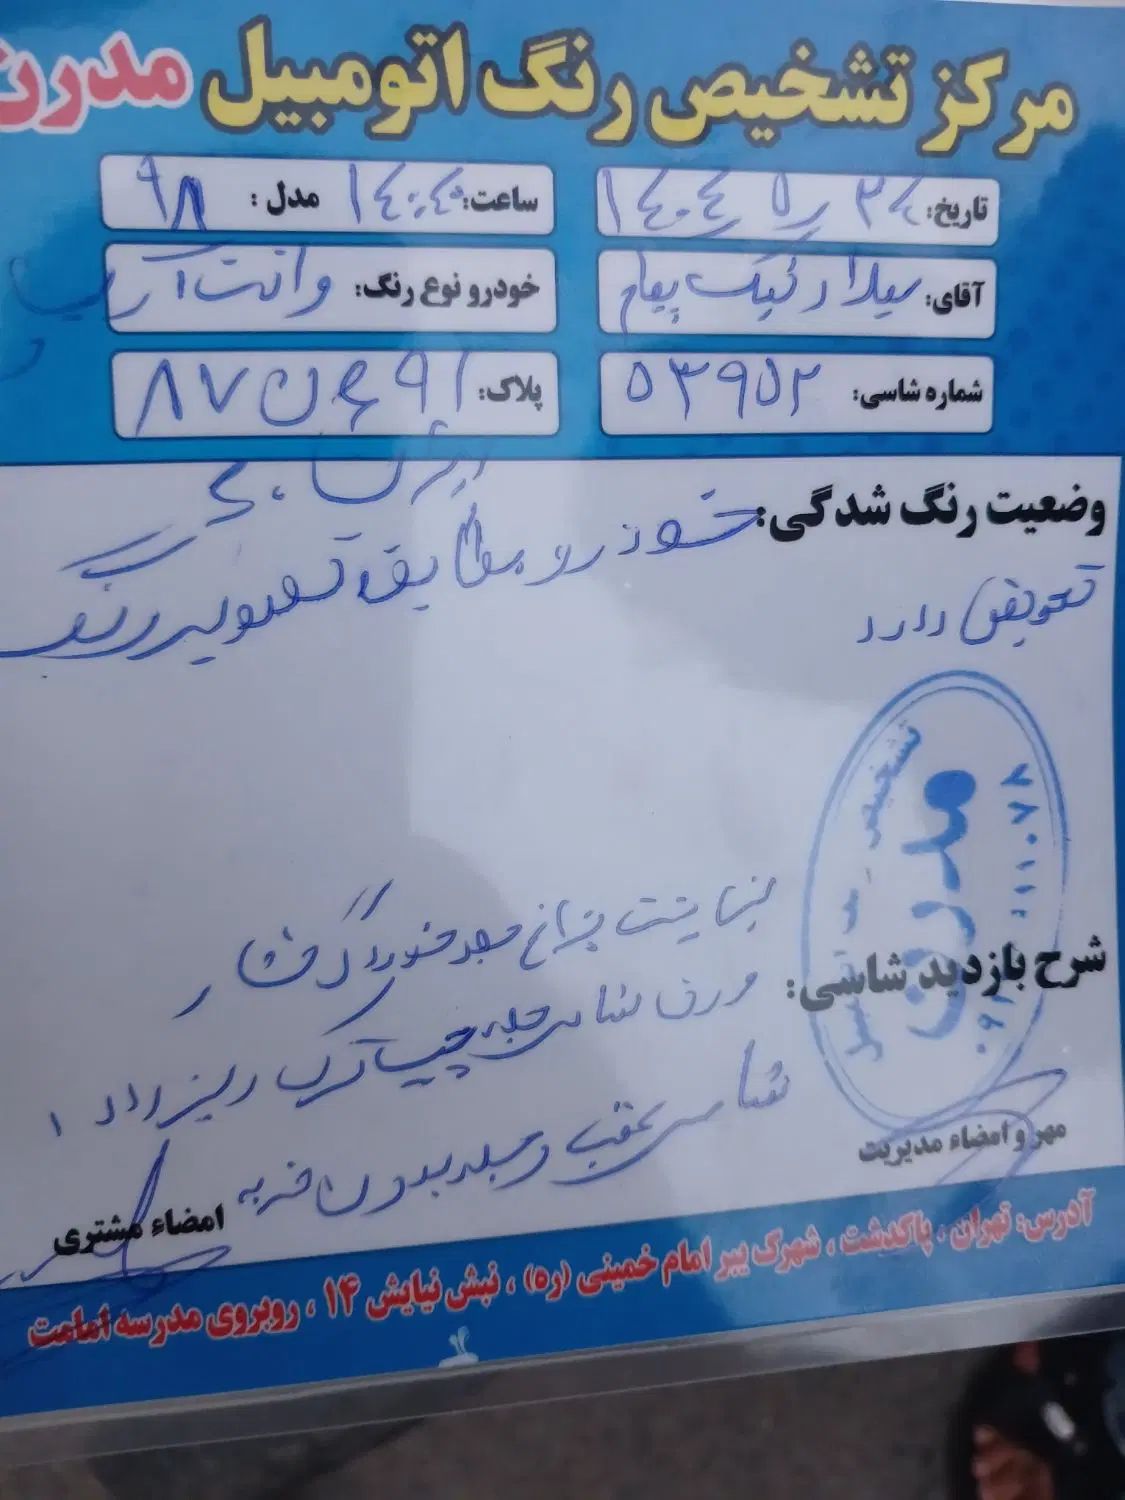 مرکز تشخیص رنگ اتومبیل مدرن
تاریخ: ۱۴۰۴ر۵ر۲۴ ساعت: ۱۴:۴۰ مدل: ۹۸
آقای: میلاد نیک پیام خودرو نوع رنگ: وانت آریسان
شماره شاسی: ۵۳۹۵۲ پلاک: ۸۷ ن ۶۹۱
ایران ۴۰
وضعیت رنگ شدگی: خودرو مطابق تصویر رنگ
تعویض دارد
تشخیص رنگ اتومبیل
مدرن
شرح بازدید شاسی:
سرشاسی جلو چپ ترک ریز دارد
شاسی عقب و جلو بدون ضربه
مهر و امضاء مدیریت
امضاء مشتری
آدرس: تهران، پاکدشت، شهرک پیر امام خمینی (ره)، نبش نیایش ۱۴، روبروی مدرسه امامت